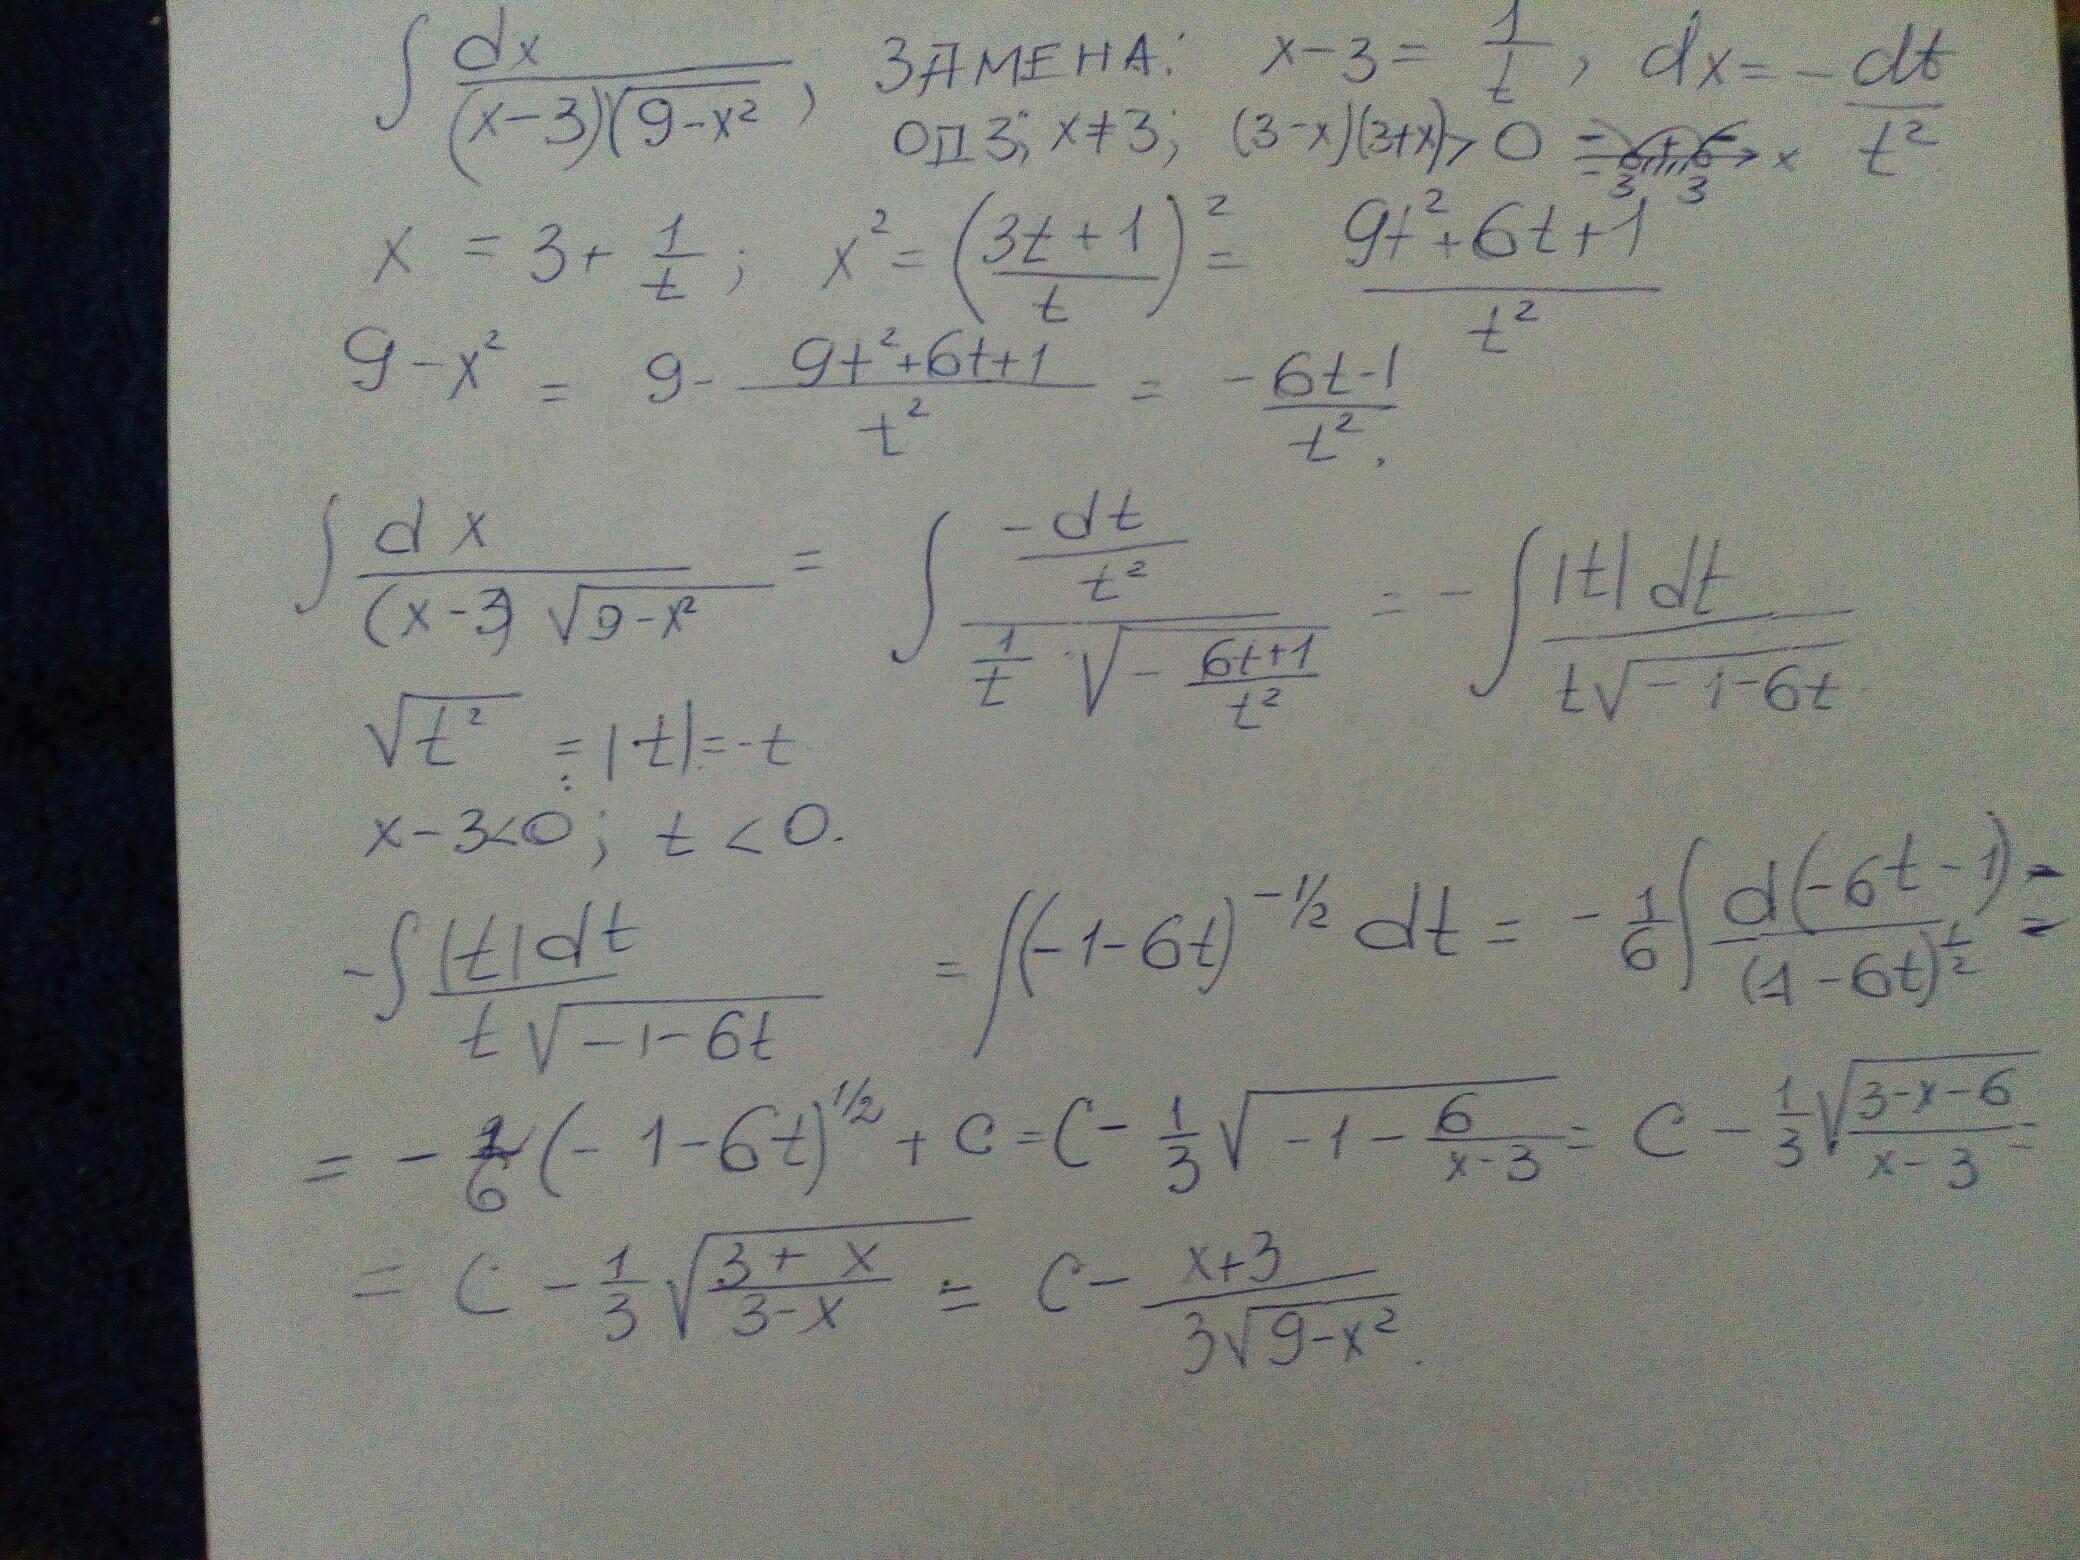 ∫ dx/((x-3)√(9-x²)), ЗАМЕНА: x-3 = 1/t, dx = -dt/t²
ОДЗ: x≠3; (3-x)(3+x)>0 - + - -3 3 x
x = 3 + 1/t; x² = ((3t+1)/t)² = (9t²+6t+1)/t²
9-x² = 9 - (9t²+6t+1)/t² = (-6t-1)/t².
∫ dx/((x-3)√(9-x²)) = ∫ (-dt/t²)/((1/t)·√(-(6t+1)/t²)) = -∫ |t|dt/(t√(-1-6t))
√(t²) = |t| = -t
x-3<0; t<0.
-∫ |t|dt/(t√(-1-6t)) = ∫(-1-6t)^(-1/2) dt = -1/6 ∫ d(-6t-1)/(-1-6t)^(1/2) =
= -2/6 (-1-6t)^(1/2) + C = C - 1/3 √(-1 - 6/(x-3)) = C - 1/3 √((3-x-6)/(x-3)) =
= C - 1/3 √((3+x)/(3-x)) = C - (x+3)/(3√(9-x²)).